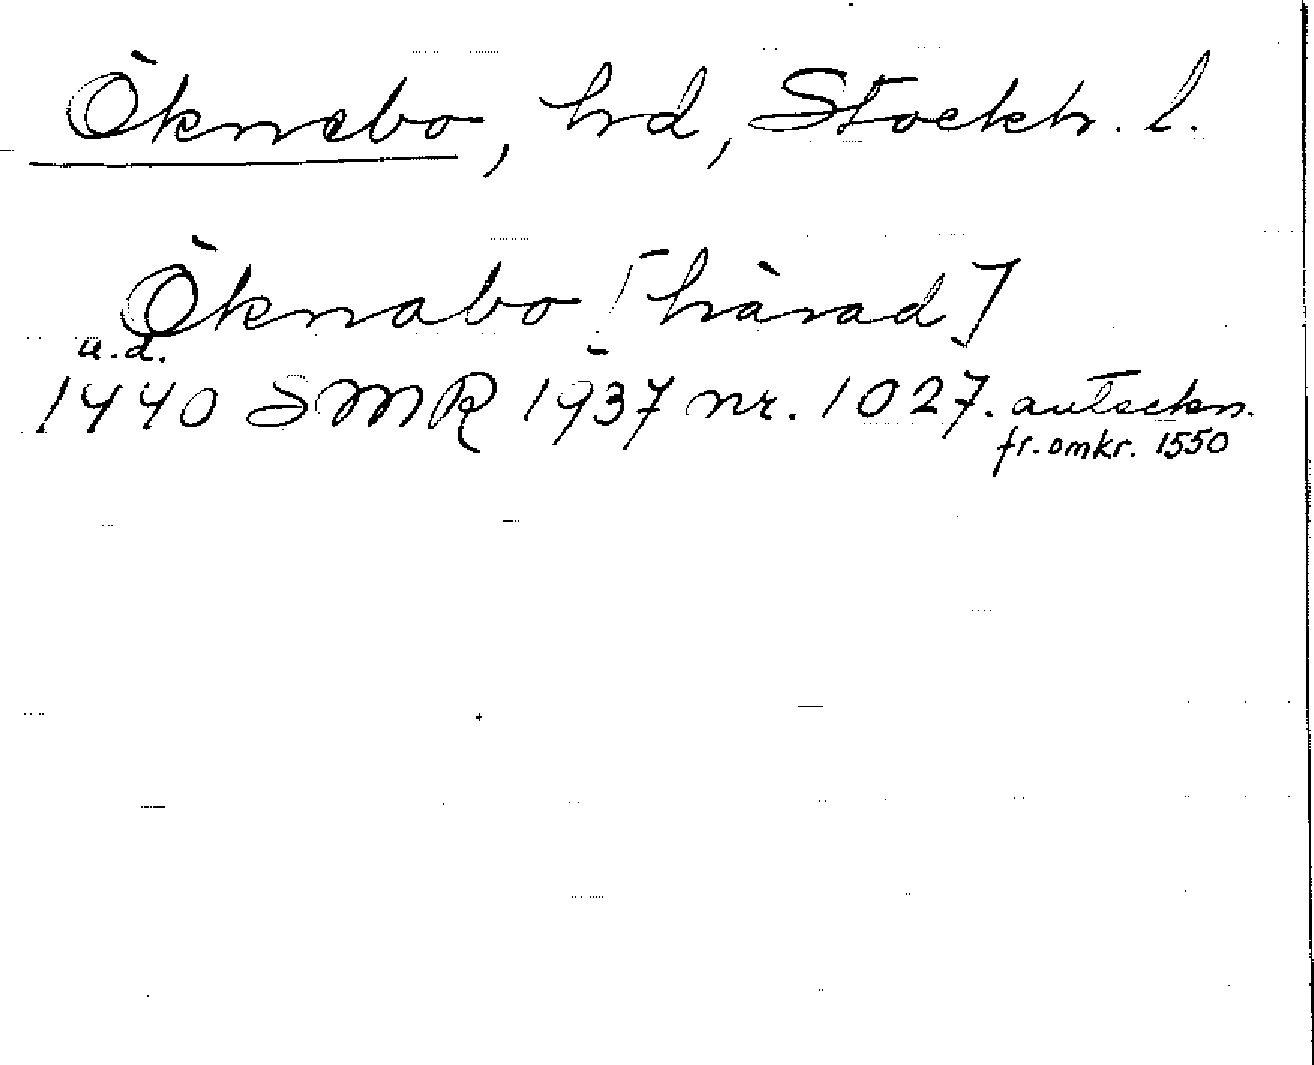 Öknebo, hd, Stockh. l.
Öknabo [härad]
u.d.
1440 SMR 1937 nr. 1027. anteckn.
fr. omkr. 1550